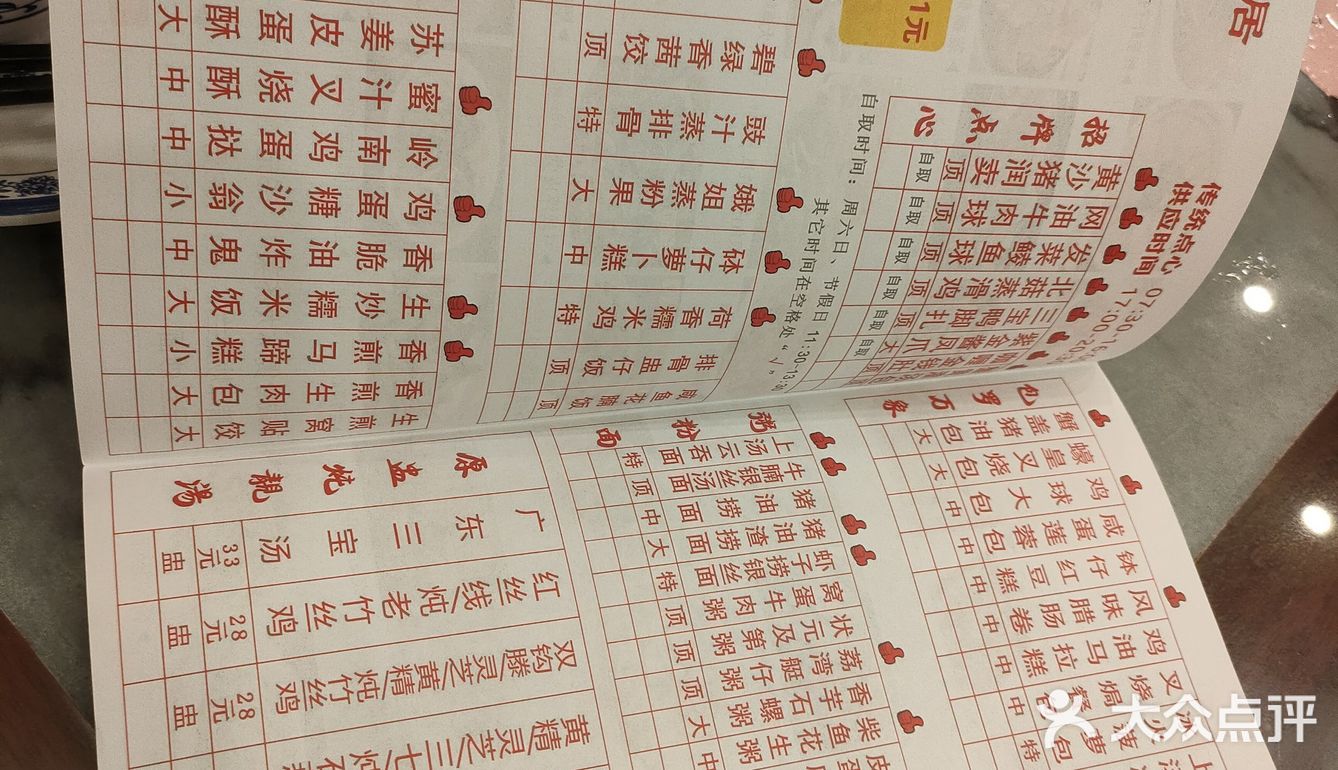 居
1元
传统点心
供应时间
07:30
17:00
招牌点心
黄沙猪润卖 顶 自取
网油牛肉球 顶 自取
发菜鲮鱼球 顶 自取
北菇蒸滑鸡 顶 自取
三宝鸭脚扎 顶 自取
紫金酱凤爪 大 自取
自取时间：周六日、节假日 11:30-13:30
其它时间在空格处“√”
碧绿香茜饺 顶
豉汁蒸排骨 特
娥姐蒸粉果 大
砵仔萝卜糕 中
荷香糯米鸡 特
排骨盅仔饭 顶
咸鱼花腩饭 顶
苏姜皮蛋酥 大
蜜汁叉烧酥 中
岭南鸡蛋挞 中
鸡蛋糖沙翁 小
香脆油炸鬼 中
生炒糯米饭 大
香煎马蹄糕 小
香煎生肉包 大
生煎窝贴饺 大
包罗万象
蟹盖猪油包 大
蠔皇叉烧包 大
鸡球大包 中
咸蛋莲蓉包 中
钵仔红豆糕 中
风味腊肠卷 中
鸡油马拉糕 中
粥粉面
上汤云吞面 特
牛腩银丝汤面 顶
猪油捞面 中
猪油渣捞面 大
虾子捞银丝面 特
窝蛋牛肉粥 顶
状元及第粥 顶
荔湾艇仔粥 顶
香芋石螺粥 大
柴鱼花生粥 中
原盅炖靓湯
广东三宝汤 33元 盅
红丝线炖老竹丝鸡 28元 盅
双钩藤灵芝黄精炖竹丝鸡 28元 盅
黄精灵芝三七炖
大众点评